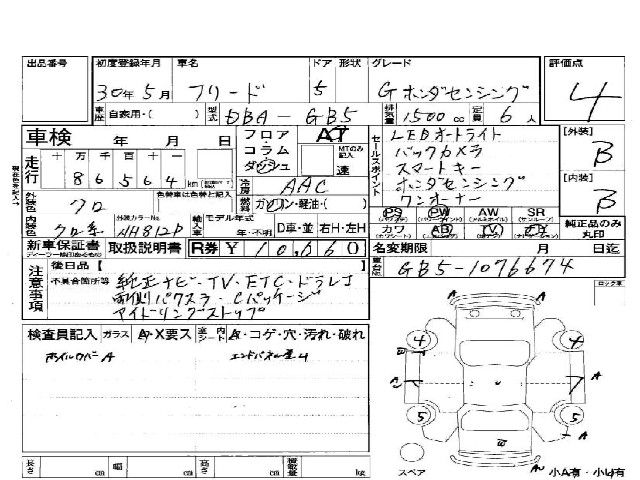 出品番号 初度登録年月 車名 ドア 形状 グレード 評価点
30年5月 フリード 5 G ホンダセンシング 4
車歴 自家用・( ) 型式 DBA-GB5 排気量 1500 cc 定員 6 人
車検 年 月 日 フロア コラム ダッシュ AT MTのみ記入 速
走行 十 万 千 百 十 一 86564 km
冷房 AAC
外装色 クロ 色替車は元色を記入
燃料 ガソリン・軽油・( )
内装色 クロ系 外装カラーNo. NH812P 輸入車 モデル年式 年・不明 D車・並 右H・左H
新車保証書 取扱説明書 R券 ¥10,660
セールスポイント
LEDオートライト
バックカメラ
スマートキー
ホンダセンシング
ワンオーナー
PS PW AW SR
カワ AB TV ナビ
純正品のみ丸印
[外装] B
[内装] B
名変期限 月 日迄
車台No. GB5-1076674
注意事項
後日品 [ ]
不具合箇所等 純正ナビ・TV・ETC・ドラレコ
両側パワスラ・Cパッケージ
アイドリングストップ
検査員記入 ガラス A・X要ス 室内シート 内 A・コゲ・穴・汚れ・破れ
ホイルカバーA エンドパネル歪U
4 4
A W A
5 5
A
W
スペア 小A有・小U有
長さ cm 幅 cm 高さ cm 積載量 kg